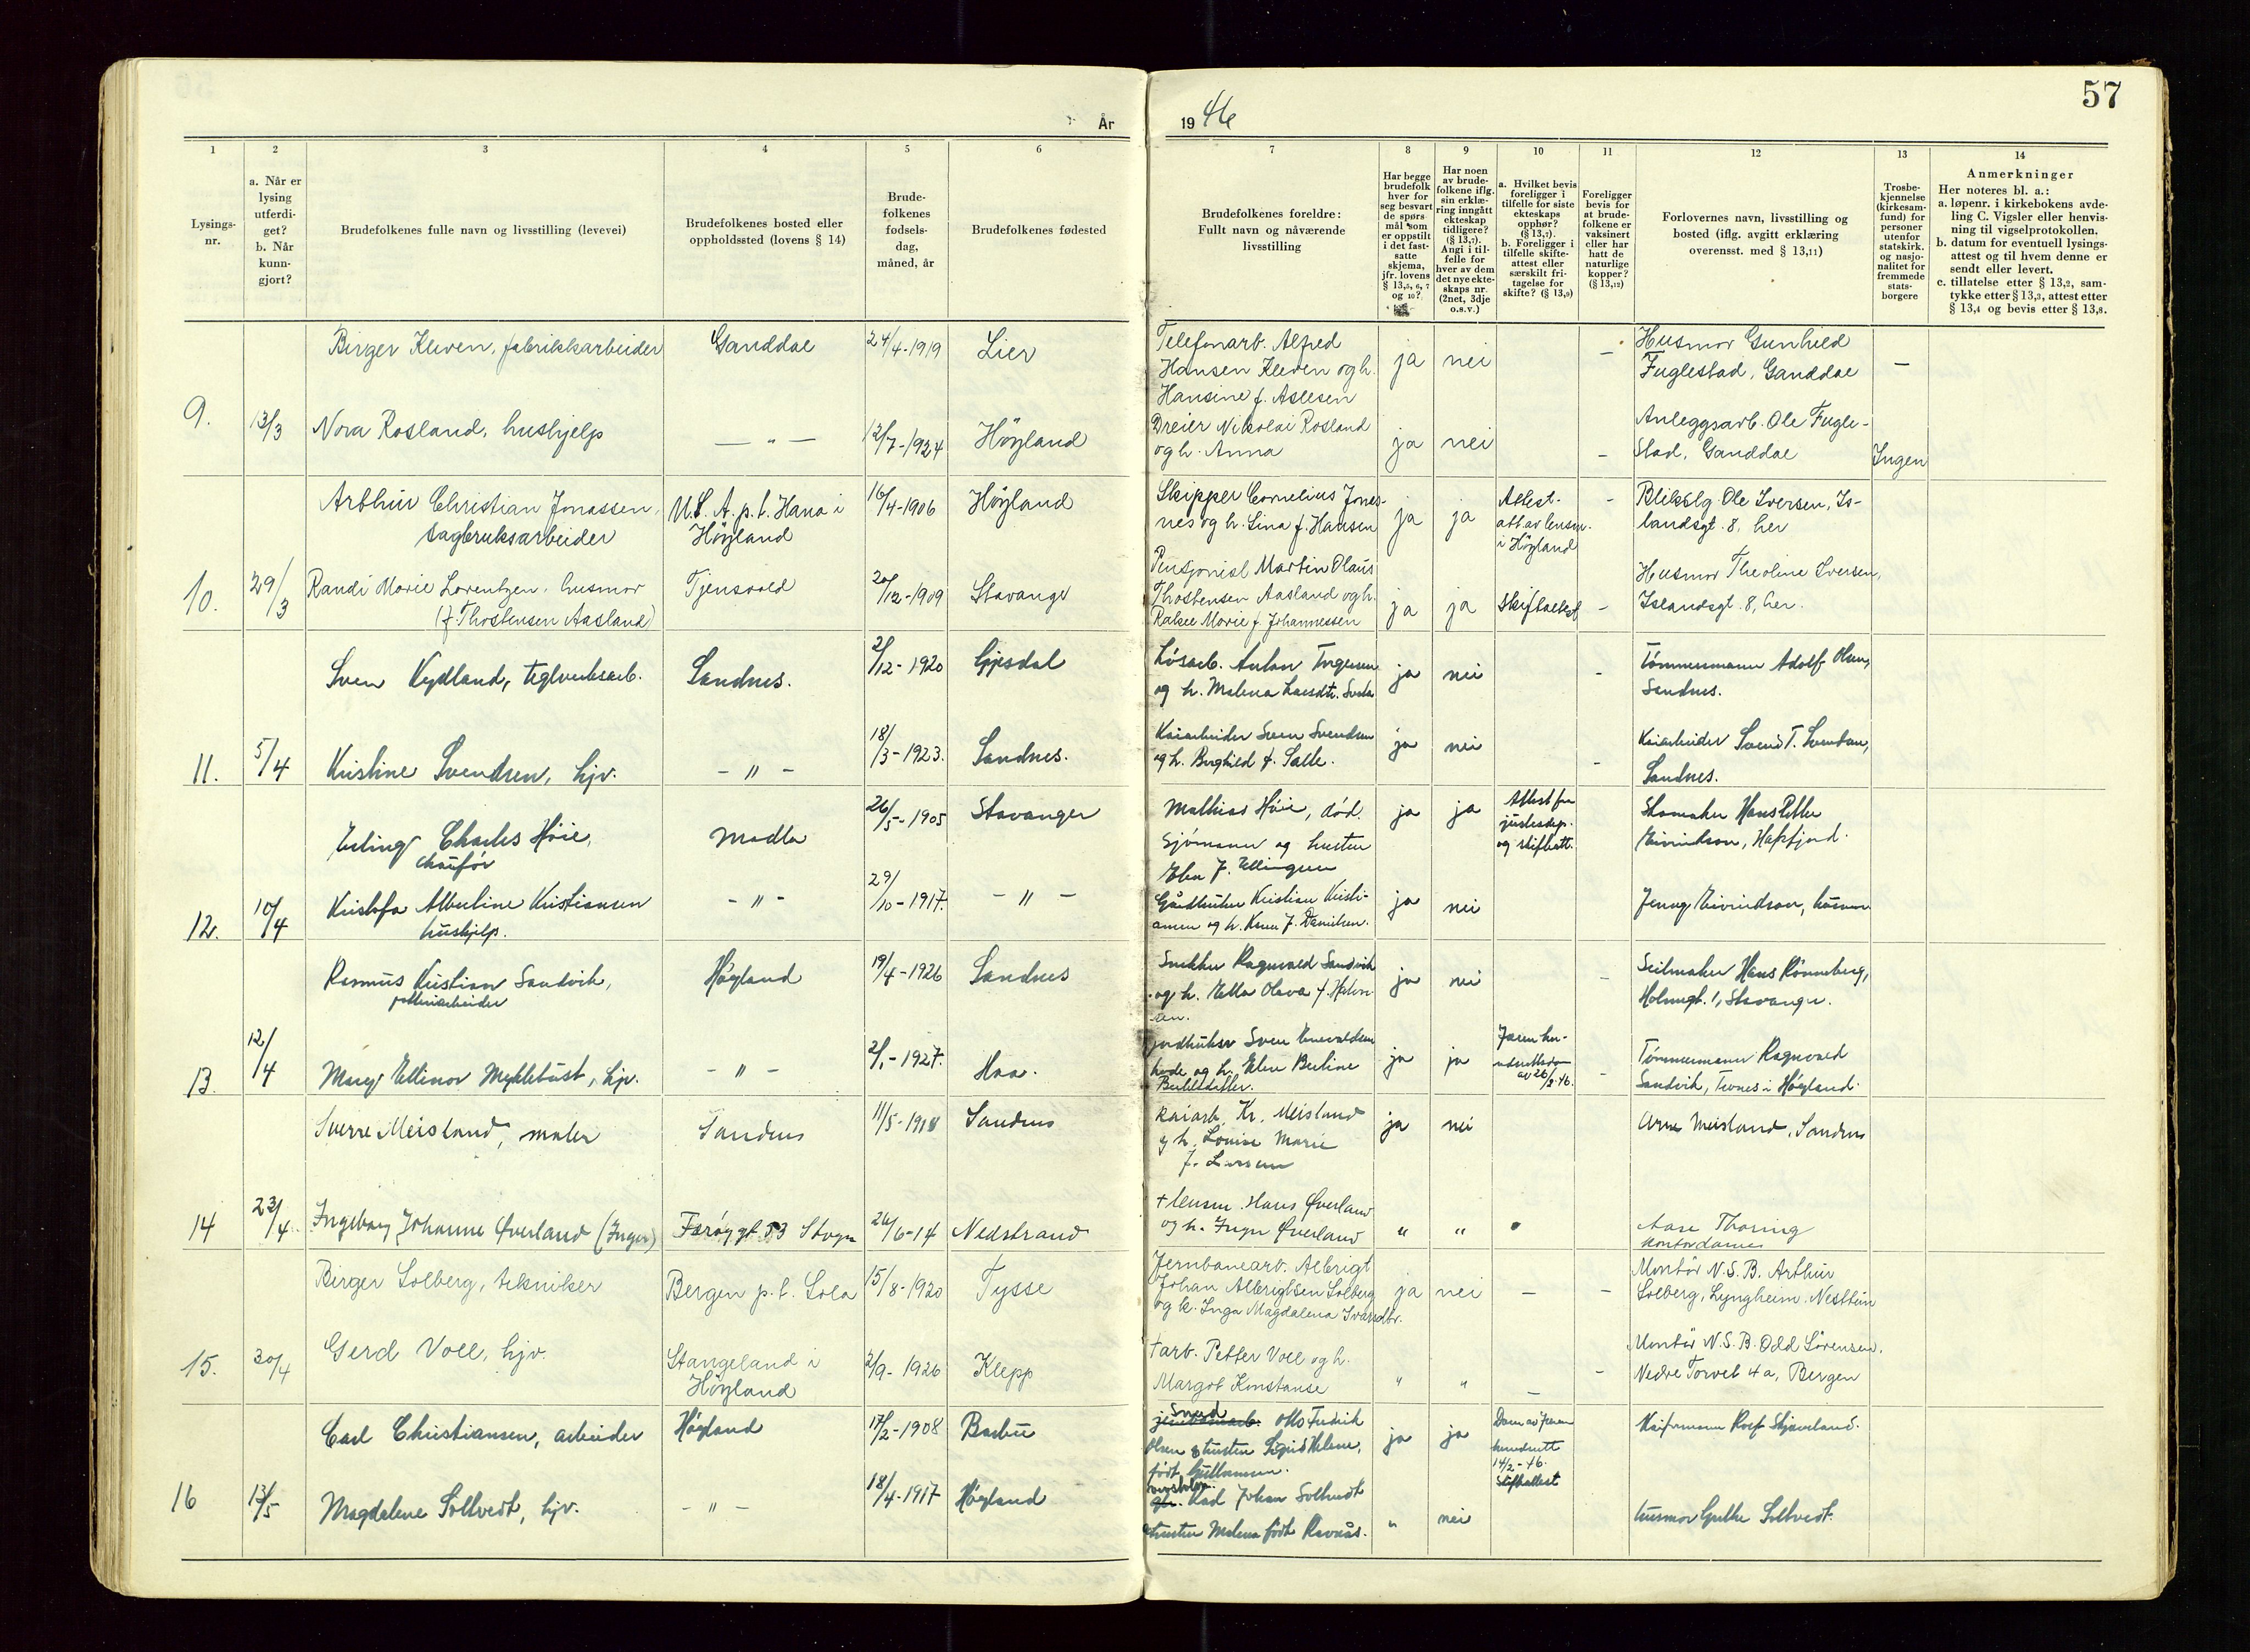 57
År 1946
1
2
3
4
5
6
7
8
9
10
11
12
13
14
Lysings-
nr.
a. Når er
lysing
utferdi-
get?
b. Når
kunn-
gjort?
Brudefolkenes fulle navn og livsstilling (levevei)
Brudefolkenes bosted eller
oppholdssted (lovens § 14)
Brude-
folkenes
fødsels-
dag,
måned, år
Brudefolkenes fødested
Brudefolkenes foreldre:
Fullt navn og nåværende
livsstilling
Har begge
brudefolk
hver for
seg besvart
de spørs-
mål som
er oppstilt
i det fast-
satte
skjema,
jfr. lovens
§ 13,5, 6, 7
og 10?
Har noen
av brude-
folkene iflg.
sin erklæ-
ring inngått
ekteskap
tidligere?
(§ 13,7).
Angi i til-
felle for
hver av dem
det nye ekte-
skaps nr.
(2net, 3dje
o.s.v.)
a. Hvilket bevis
foreligger i
tilfelle for siste
ekteskaps
opphør?
(§ 13,7).
b. Foreligger i
tilfelle skifte-
attest eller
særskilt fri-
tagelse for
skifte? (§ 13,9)
Foreligger
bevis for
at brude-
folkene er
vaksinert
eller har
hatt de
naturlige
kopper?
(§ 13,12)
Forlovernes navn, livsstilling og
bosted (iflg. avgitt erklæring
overensst. med § 13,11)
Trosbe-
kjennelse
(kirkesam-
fund) for
personer
utenfor
statskirk.
og nasjo-
nalitet for
fremmede
stats-
borgere
Anmerkninger
Her noteres bl. a.:
a. løpenr. i kirkebokens avde-
ling C. Vigsler eller henvis-
ning til vigselprotokollen.
b. datum for eventuell lysings-
attest og til hvem denne er
sendt eller levert.
c. tillatelse etter § 13,2, sam-
tykke etter § 13,3, attest etter
§ 13,4 og bevis etter § 13,8.
9. 13/3
Birger Kleven, fabrikkarbeider
Ganddal
24/4-1919
Lier
Telefonarb. Alfred
Hansen Kleven og h.
Hansine f. Aslesen
ja nei –
Husmor Gunhild
Fuglestad, Ganddal
–
Nora Rosland, hushjelp
— " —
12/7-1924
Höyland
Dreier Nikolai Rosland
og h. Anna
ja nei –
Anleggsarb. Ole Fugle-
stad, Ganddal
Ingen
10. 29/3
Arthur Christian Jonassen,
sagbruksarbeider
U.S.A. p.t. Hana i
Höyland
16/4-1906
Höyland
Skipper Cornelius Jones-
nes og h. Lina f. Hansen
ja ja
Attest.
att av lensm.
i Höyland
–
Blikslg. Ole Iversen, Is-
landsgt. 8, her
Randi Marie Lorentzen, husmor
(f. Thostensen Aasland)
Tjensvold
20/12-1909
Stavanger
Pensjonist Martin Olaus
Thostensen Aasland og h.
Rakel Marie f. Johannessen
ja ja
Skifteattest
–
Husmor Theoline Iversen,
Islandsgt. 8, her.
11. 5/4
Sven Kydland, teglverksarb.
Sandnes.
2/12-1920
Gjesdal
Løsarb. Anton Torgersen
og h. Malena Larsdtr.
ja nei –
Tømmermann Adolf Olsen,
Sandnes.
Kristine Svendsen, hjv.
– " –
18/3-1923.
Sandnes.
Kaiarbeider Sven Svendsen
og h. Borghild f. Salte.
ja nei –
Kaiarbeider Svend T. Svendsen,
Sandnes.
12. 10/4
Erling Charles Höie,
chaufør
Madla
26/5-1905
Stavanger
Mathias Höie, død.
Sjømann og hustru
Elen f. Ellingsen
ja ja
Attest fra
justisdep.
og skifteatt.
Skomaker Hans Petter
Eivindson, Hafrsfjord.
Kristofa Albertine Kristiansen
hushjelp.
– " –
29/10-1917.
– " –
Gårdbruker Kristian Kristi-
ansen og h. Karen f. Danielsen.
ja nei
Jenny Eivindson, husmor
13. 12/4
Rasmus Kristian Sandvik,
pottemiarbeider
Höyland
19/4-1926
Sandnes
Snekker Ragnvald Sandvik
og h. Etta Olava f. Halvor-
sen.
ja nei –
Seilmaker Hans Rönneberg,
Holmegt. 1, Stavanger.
Mary Ellinor Myklebust, hjv.
– " –
2/1-1927.
Haa.
Jordbruker Sven Enevaldsen
og h. Elen Berline
ja ja
Jæren her-
redsrettsdom
av 26/2-46.
–
Tømmermann Ragnvald
Sandvik, Trones i Höyland.
14 23/4.
Sverre Meisland, maler
Sandnes
11/5-1918
Sandnes
Kaiarb. Kr. Meisland
og h. Louise Marie
f. Larsen
ja nei
Arne Meisland, Sandnes
Ingeborg Johanne Øverland (Inger)
Færøygt 53 Stvgr
26/6-14
Nedstrand
† lensm. Hans Øverland
og h. Inger Øverland
" "
Aase Thoring
kontordame
15. 30/4
Birger Solberg, tekniker
Bergen p.t. Sola
15/8-1920
Tysse
Jernbanearb. Albrigt
Johan Albrigtsen Solberg
og h. Inga Magdalena Ivarsdtr.
ja nei – –
Montör N.S.B. Arthur
Solberg, Lyngheim. Nesttun
Gerd Voll, hjv.
Stangeland i
Höyland
2/9-1926
Klepp
† arb. Petter Voll og h.
Margot Konstanse
" " – –
Montör N.S.B. Odd Sörensen,
Nedre Torvet 4a, Bergen
16 13/5
Carl Christiansen, arbeider
Höyland
17/2-1908
Barbu
Smed
Otto Fredrik
Olsen & hustru Sigrid Helene,
født Guttormsen.
ja ja
Dom av Jæren
herredsrett
14/2-46.
Skifteattest
Kaiformann Rolf Skjæveland.
Magdalene Soltvedt, hjv.
– " –
18/4-1917
Höyland
Karl Johan Soltvedt
& hustru Malena født Ravnås.
" nei
Husmor Soltvedt.